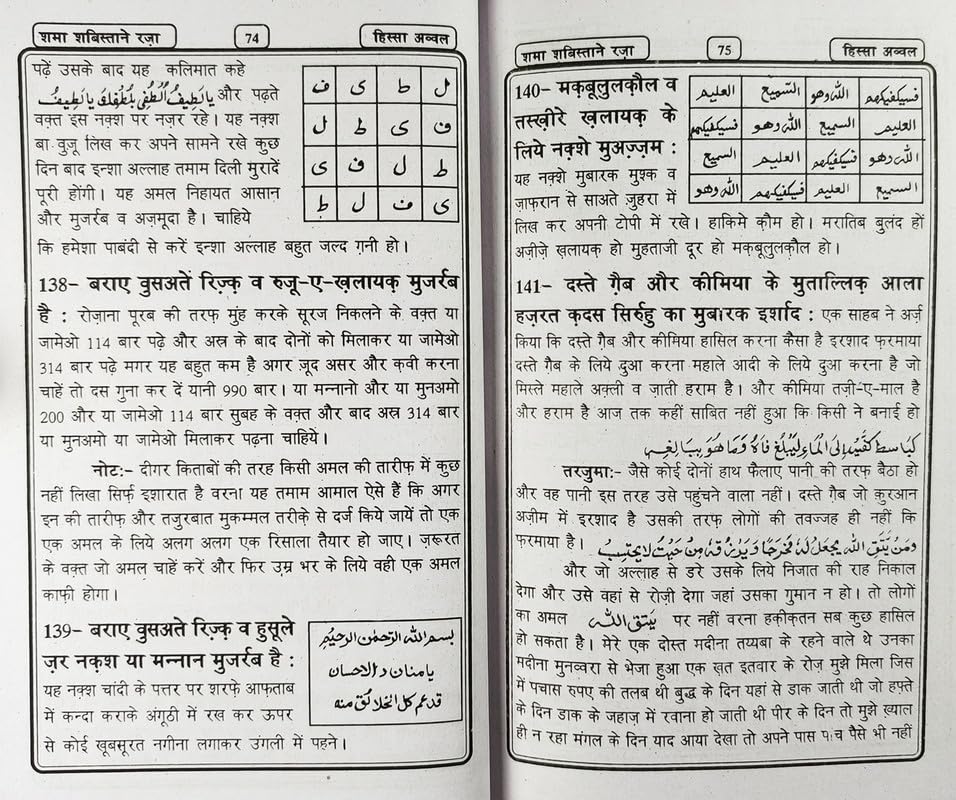 शमा शबिस्ताने रज़ा
74
हिस्सा अव्वल
पढ़ें उसके बाद यह कलिमात कहे
يالَطِيفُ اَلْطُفْنِي بِلُطْفِكَ يالَطِيفُ और पढ़ते
वक़्त इस नक़्श पर नज़र रहे। यह नक़्श
बा वुजू लिख कर अपने सामने रखे कुछ
दिन बाद इन्शा अल्लाह तमाम दिली मुरादें
पूरी होंगी। यह अमल निहायत आसान
और मुजर्रब व अज़मूदा है। चाहिये
ل ط ی ف
ف ی ط ل
ط ل ف ی
ی ف ل ط
कि हमेशा पाबंदी से करें इन्शा अल्लाह बहुत जल्द ग़नी हो।
138- बराए वुसअतें रिज़्क़ व रुजू-ए-ख़लायक़ मुजर्रब
है : रोज़ाना पूरब की तरफ़ मुंह करके सूरज निकलने के वक़्त या
जामेओ 114 बार पढ़े और अस्र के बाद दोनों को मिलाकर या जामेओ
314 बार पढ़े मगर यह बहुत कम है अगर ज़ूद असर और क़वी करना
चाहें तो दस गुना कर दें यानी 990 बार। या मन्नानो और या मुनअमो
200 और या जामेओ 114 बार सुबह के वक़्त और बाद अस्र 314 बार
या मुनअमो या जामेओ मिलाकर पढ़ना चाहिये।
नोटः- दीगर किताबों की तरह किसी अमल की तारीफ़ में कुछ
नहीं लिखा सिर्फ़ इशारात है वरना यह तमाम आमाल ऐसे हैं कि अगर
इन की तारीफ़ और तजुरबात मुकम्मल तरीक़े से दर्ज किये जायें तो एक
एक अमल के लिये अलग अलग एक रिसाला तैयार हो जाए। ज़रूरत
के वक़्त जो अमल चाहें करें और फिर उम्र भर के लिये वही एक अमल
काफ़ी होगा।
139- बराए वुसअते रिज़्क़ व हुसूले
ज़र नक़श या मन्नान मुजर्रब है :
यह नक़्श चांदी के पत्तर पर शरफ़े आफ़ताब
में कन्दा कराके अंगूठी में रख कर ऊपर
से कोई ख़ूबसूरत नगीना लगाकर उंगली में पहने।
بسم الله الرحمن الرحيم
يا منان د الاحسان
قد عم كل الخلائق منه
शमा शबिस्ताने रज़ा
75
हिस्सा अव्वल
140- मक़बूलुलक़ौल व
तस्ख़ीरे ख़लायक़ के
लिये नक़्शे मुअज़्ज़म :
यह नक़्शे मुबारक मुश्क व
ज़ाफ़रान से साअते ज़ुहरा में
فسيكفيكهم الله وهو السميع العليم
العليم السميع الله وهو فسيكفيكهم
الله وهو فسيكفيكهم العليم السميع
السميع العليم فسيكفيكهم الله وهو
लिख कर अपनी टोपी में रखे। हाकिमे क़ौम हो। मरातिब बुलंद हों
अज़ीज़े ख़लायक़ हो मुहताजी दूर हो मक़बूलुलक़ौल हो।
141- दस्ते ग़ैब और कीमिया के मुताल्लिक़ आला
हज़रत क़दस सिर्रुहु का मुबारक इर्शाद : एक साहब ने अर्ज़
किया कि दस्ते ग़ैब और कीमिया हासिल करना कैसा है इरशाद फ़रमाया
दस्ते ग़ैब के लिये दुआ करना महाले आदी के लिये दुआ करना है जो
मिस्ले महाले अक़्ली व ज़ाती हराम है। और कीमिया तज़ी-ए-माल है
और हराम है आज तक कहीं साबित नहीं हुआ कि किसी ने बनाई हो
كباسط كفيه إلى الماء ليبلغ فاه وما هو ببالغه
तरजुमाः- जैसे कोई दोनों हाथ फैलाए पानी की तरफ़ बैठा हो
और वह पानी इस तरह उसे पहुंचने वाला नहीं। दस्ते ग़ैब जो क़ुरआन
अज़ीम में इरशाद है उसकी तरफ़ लोगों की तवज्जह ही नहीं कि
फ़रमाया है। ومن يتق الله يجعل له مخرجا ويرزقه من حيث لا يحتسب
और जो अल्लाह से डरे उसके लिये निजात की राह निकाल
देगा और उसे वहां से रोज़ी देगा जहां उसका गुमान न हो। तो लोगों
का अमल يتق الله पर नहीं वरना हक़ीक़तन सब कुछ हासिल
हो सकता है। मेरे एक दोस्त मदीना तय्यबा के रहने वाले थे उनका
मदीना मुनव्वरा से भेजा हुआ एक ख़त इतवार के रोज़ मुझे मिला जिस
में पचास रुपए की तलब थी बुद्ध के दिन यहां से डाक जाती थी जो हफ़्ते
के दिन डाक के जहाज़ में रवाना हो जाती थी पीर के दिन तो मुझे ख़्याल
ही न रहा मंगल के दिन याद आया देखा तो अपने पास पांच पैसे भी नहीं